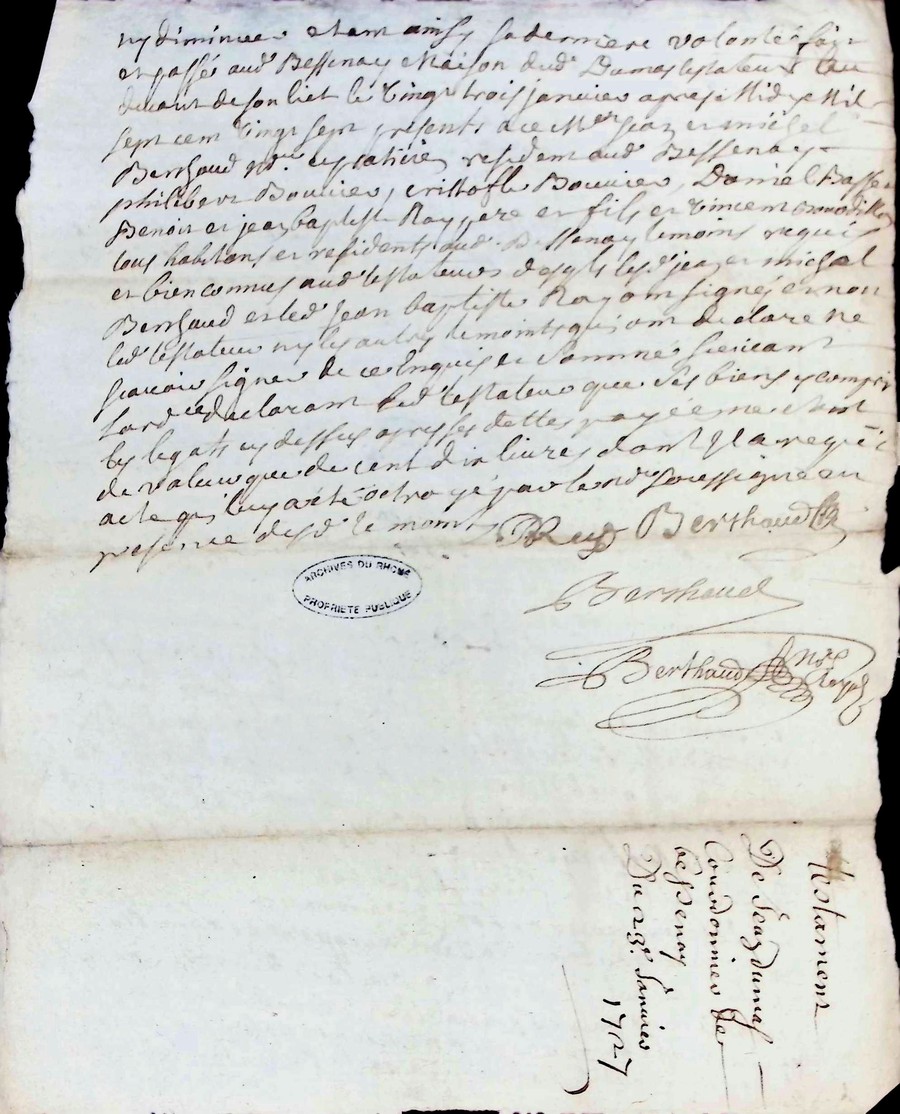 ny diminuer etant ainsy sa derniere volonté fait
et passé aud. Bessenay Maison dud. Dumas testateur au
devant de son lict le vingt trois janvier apres Midy Mil
sept cent vingt sept presents a ce Mre jean et michel
Berthaud residents aud. Bessenay
philibert Bouvier, cristofle Bouvier, Daniel
Benoit et jean baptiste Roy pere et fils et vincent
tous habitans et residents aud. Bessenay temoins requis
et bien connus aud. testateur desqls lesd. jean et michel
Berthaud et led. jean baptiste Roy ont signés et non
led. testateur ny les autres temoints qui ont declare ne
scavoir signer de ce enquis et sommés
declarant led. testateur que ses biens y compris
les legats cy dessus apres ses dettes payée ne sont
de valeur que de cent dix livres dont il a requis
acte qui luy a eté octroyé par le nre soussigné en
presence desd. temoints Roy Berthaud
Berthaud
Berthaud nre Royal
ARCHIVES DU RHONE
PROPRIETE PUBLIQUE
Testament
De jean dumas
Courdonnier de
bessenay
Du 23e Janvier
1727